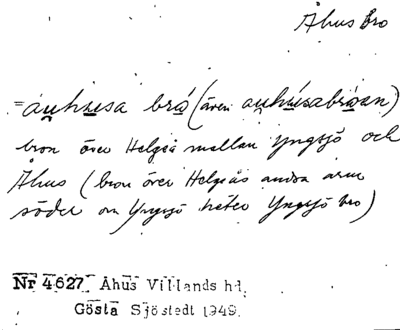 Åhus bro
=áu̯hu̱sa brá̱ (även au̯hú̱sabrá̱an)
bron över Helgeå mellan Yngsjö och
Åhus (bron över Helgeås andra arm
söder om Yngsjö heter Yngsjö bro)
Nr 4627 Åhus Villands hd,
Gösta Sjöstedt 1949.